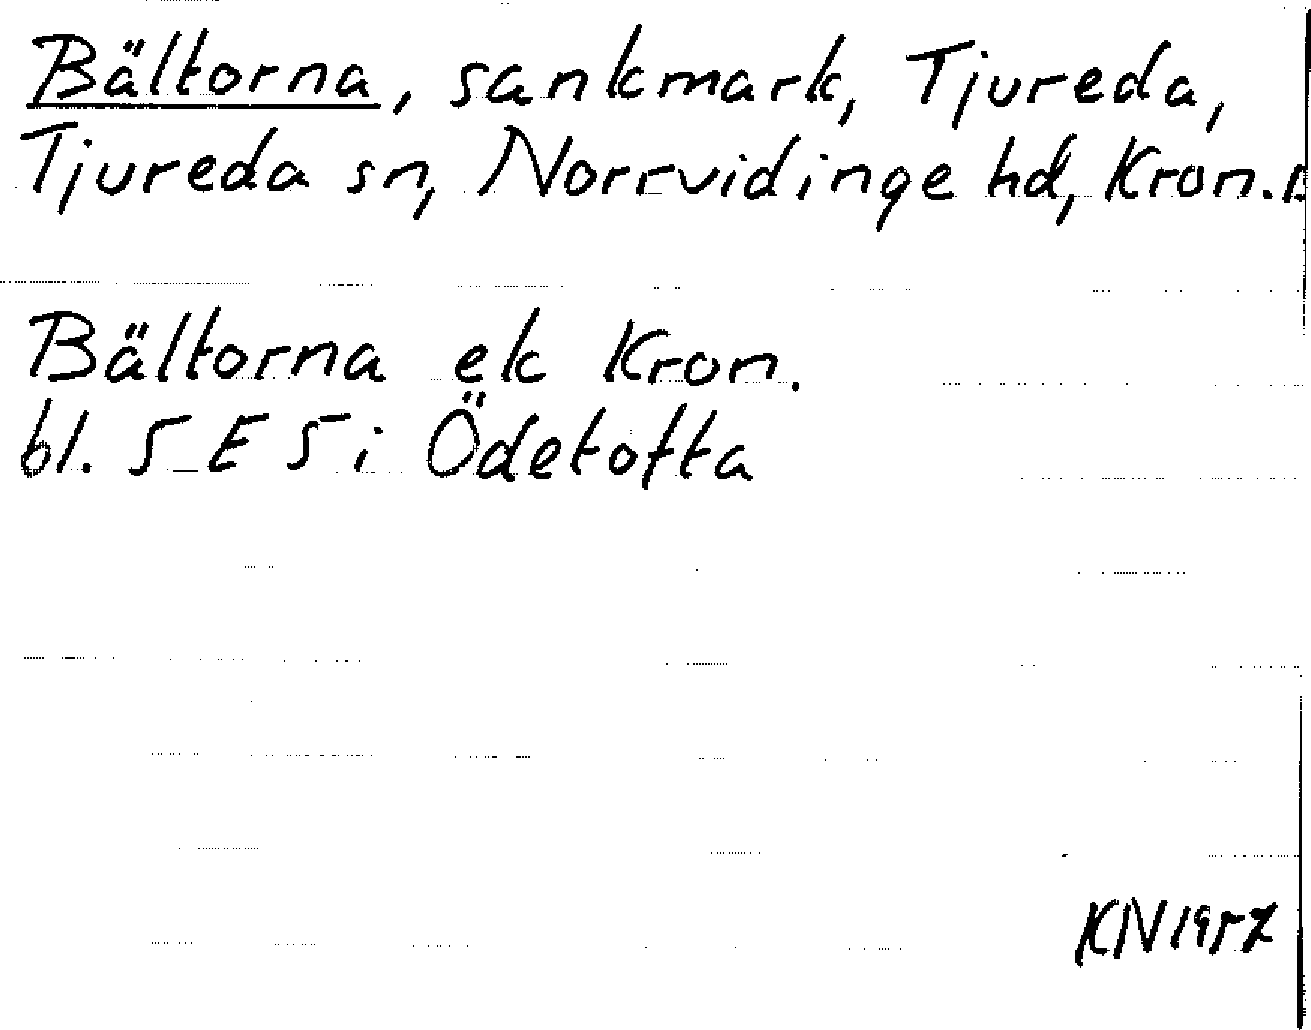 Bältorna, sankmark, Tjureda,
Tjureda sn, Norrvidinge hd, Kron.
Bältorna ek Kron.
bl. 5 E 5 i Ödetofta
KN 1957